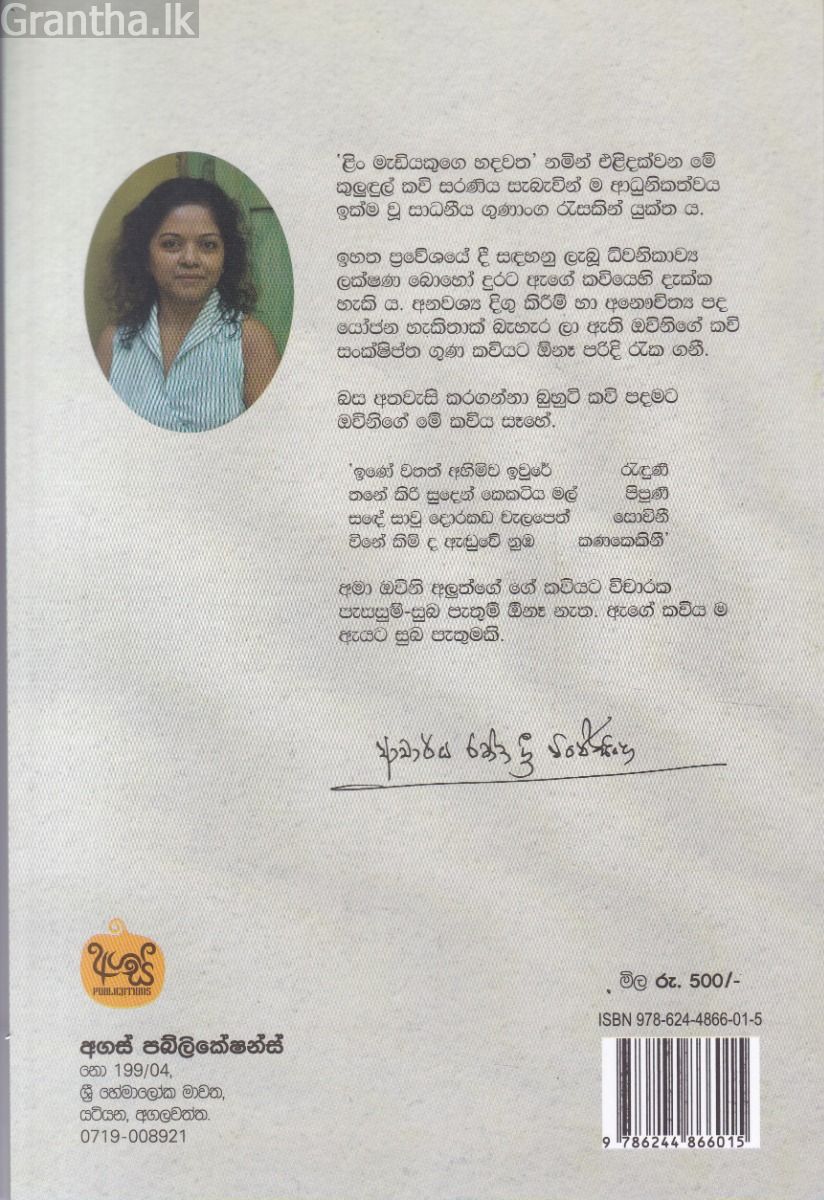 Grantha.lk
'ළිං මැඩියකුගෙ හදවත' නමින් එළිදක්වන මේ
කුලුඳුල් කවි සරණිය සැබැවින් ම ආධුනිකත්වය
ඉක්ම වූ සාධනීය ගුණාංග රැසකින් යුක්ත ය.
ඉහත ප්‍රවේශයේ දී සඳහනු ලැබූ ධ්වනිකාව්‍ය
ලක්ෂණ බොහෝ දුරට ඇගේ කවියෙහි දැක්ක
හැකි ය. අනවශ්‍ය දිගු කිරීම් හා අනෞචිත්‍ය පද
යෝජන හැකිතාක් බැහැර ලා ඇති ඔවිනිගේ කවි
සංක්ෂිප්ත ගුණ කවියට ඕනෑ පරිදි රැක ගනී.
බස අතවැසි කරගන්නා බුහුටි කවි පදමට
ඔවිනිගේ මේ කවිය සෑහේ.
'ඉණේ වතත් අහිමිව ඉවුරේ රැඳුණි
තනේ කිරි සුදෙන් කෙකටිය මල් පිපුණි
සඳේ සාවු දොරකඩ වැලපෙත් සොවිනී
විනේ කිම් ද ඇඬුවේ නුඹ කණකෙකිනී'
අමා ඔවිනි අලුත්ගේ ගේ කවියට විචාරක
පැසසුම්-සුබ පැතුම් ඕනෑ නැත. ඇගේ කවිය ම
ඇයට සුබ පැතුමකි.
ආචාර්ය රත්න ශ්‍රී විජේසිංහ
අගස්
PUBLICATIONS
මිල රු. 500/-
ISBN 978-624-4866-01-5
අගස් පබ්ලිකේෂන්ස්
නො 199/04,
ශ්‍රී හේමාලෝක මාවත,
යටියන, අගලවත්ත.
0719-008921
9 786244 866015